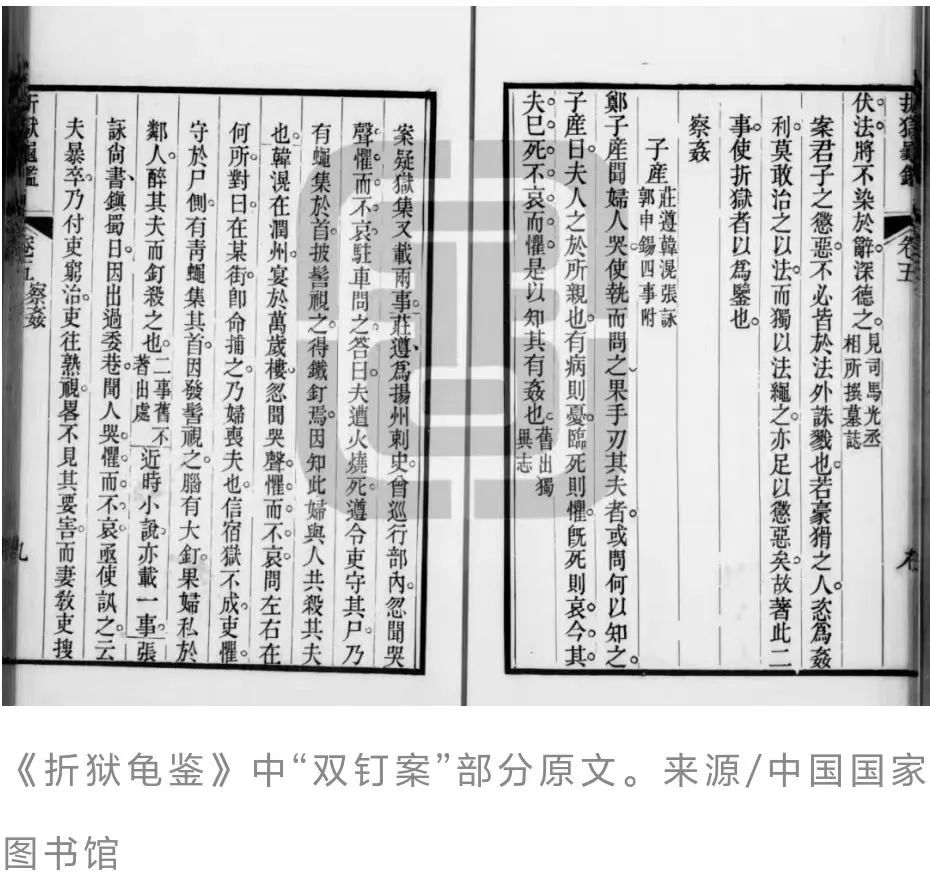 折獄龜鑑
卷五
九
伏法將不染於辭深德之。見司馬光丞
相所撰墓誌
案君子之懲惡。不必皆於法外誅戮也。若豪猾之人恣為姦
利。莫敢治之以法。而獨以法繩之。亦足以懲惡矣。故著此二
事。使折獄者以為鑒也。
察姦
子產莊遵韓滉張詠
郭申錫四事附
鄭子產聞婦人哭。使執而問之。果手刃其夫者。或問何以知之。
子產曰。夫人之於所親也。有病則憂。臨死則懼。旣死則哀。今其
夫已死。不哀而懼。是以知其有姦也。舊出獨
異志
案疑獄集又載兩事。莊遵為揚州刺史。曾巡行部內。忽聞哭
聲。懼而不哀。駐車問之。答曰。夫遭火燒死。遵令吏守其尸。乃
有蠅集於首。披髻視之。得鐵釘焉。因知此婦與人共殺其夫
也。韓滉在潤州。宴於萬歲樓。忽聞哭聲。懼而不哀。問左右在
何所。對曰。在某街。卽命捕之。乃婦喪夫也。信宿獄不成。吏懼。
守於尸側。有靑蠅集其首。因發髻視之。腦有大釘。果婦私於
鄰人。醉其夫而釘殺之也。二事舊不
著出處
近時小說。亦載一事。張
詠尙書鎭蜀日。因出過委巷。聞人哭。懼而不哀。亟使訊之。云
夫暴卒。乃付吏窮治。吏往熟視。畧不見其要害。而妻敎吏搜
折獄龜鑑
卷五 察姦
九
《折狱龟鉴》中“双钉案”部分原文。来源/中国国家
图书馆